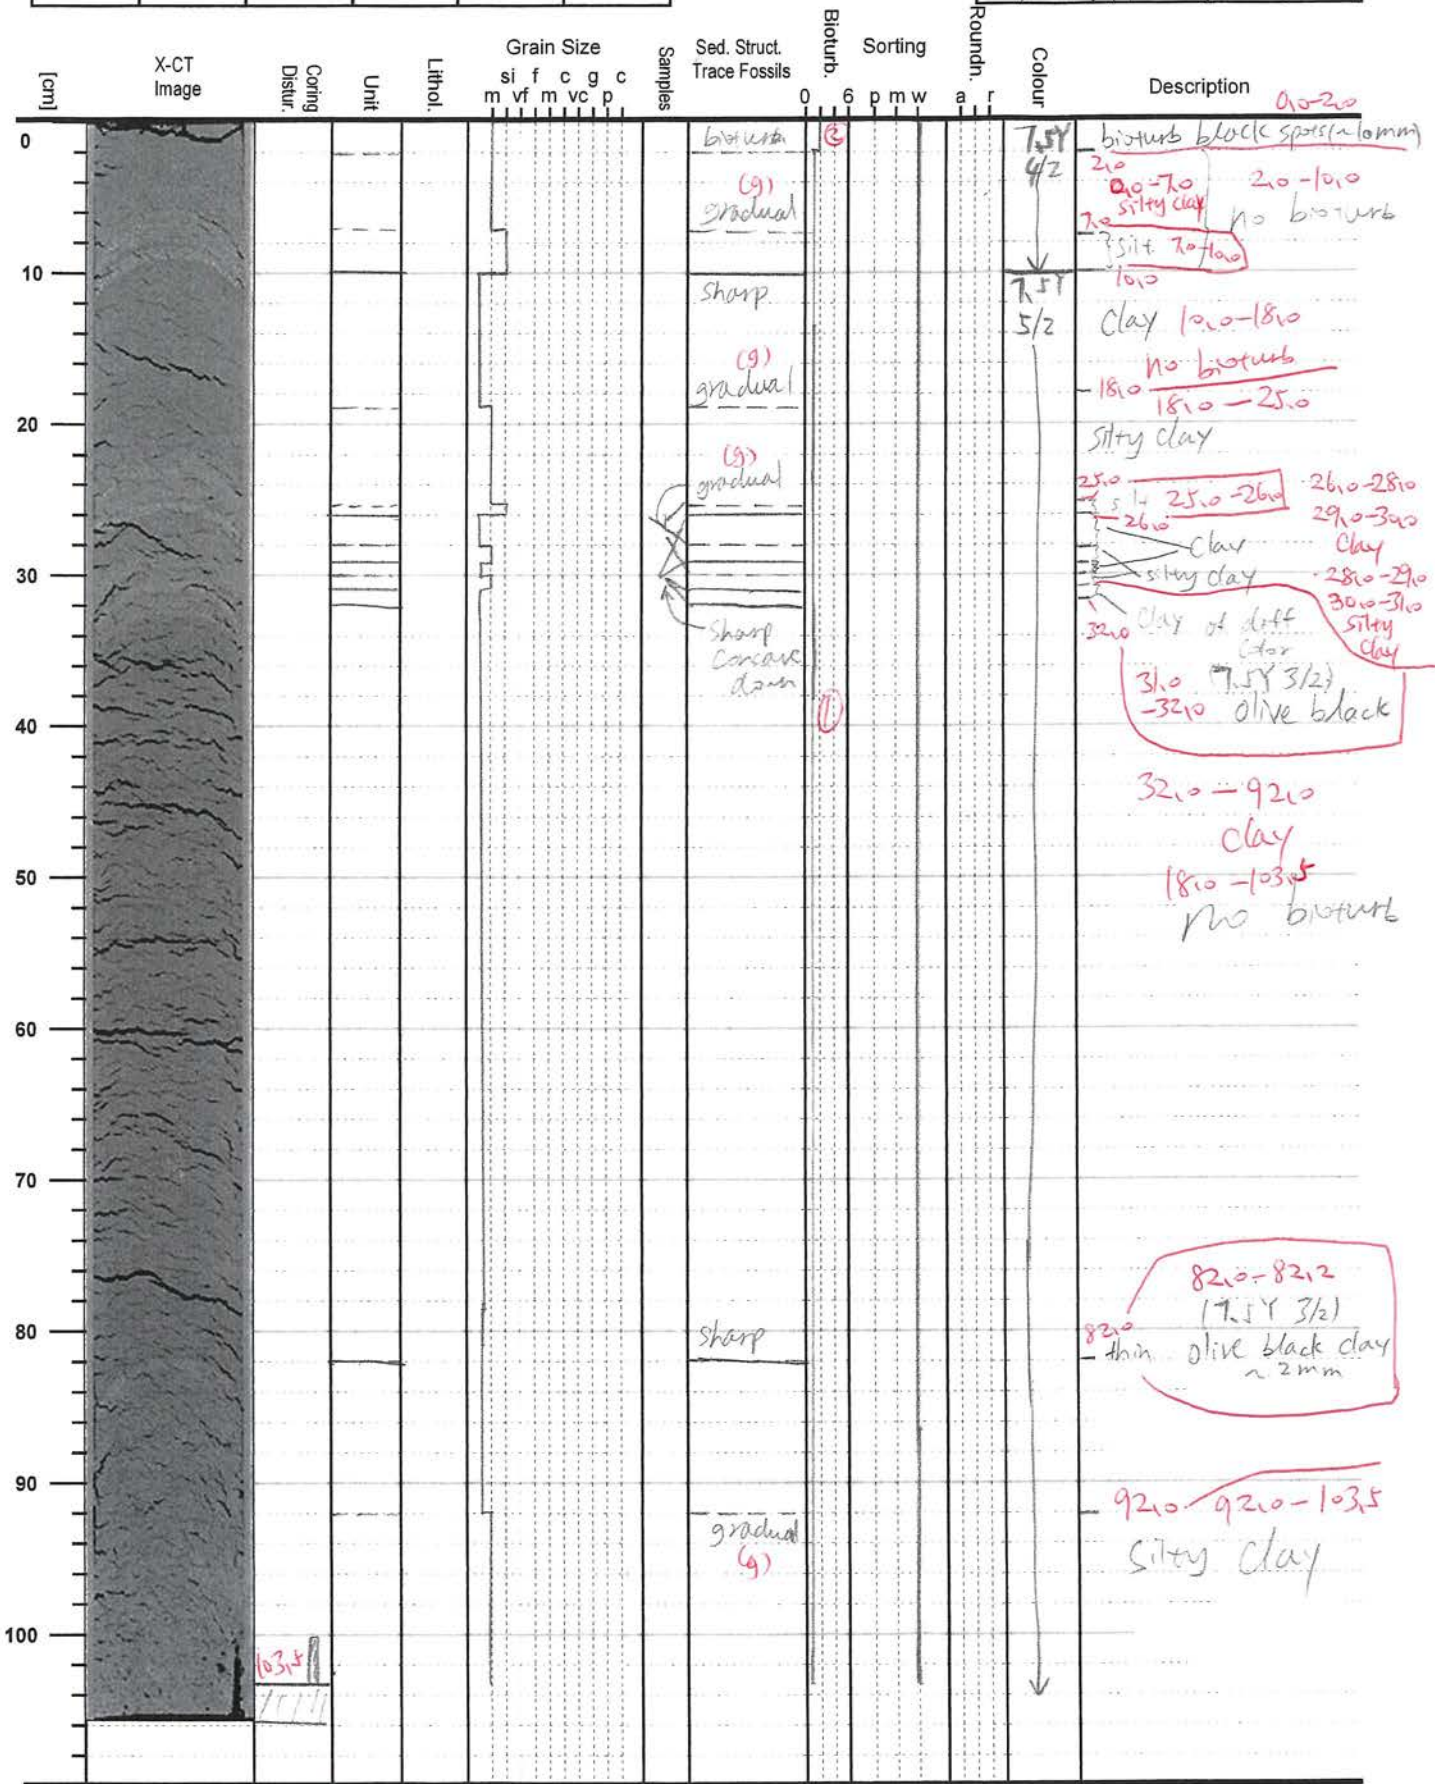 [cm]
X-CT
Image
Coring
Distur.
Unit
Lithol.
Grain Size
si f c g c
m vf m vc p
Samples
Sed. Struct.
Trace Fossils
Bioturb.
0 6
Sorting
p m w
Roundn.
a r
Colour
Description
0,0-2,0
0
10
20
30
40
50
60
70
80
90
100
103,5
bioturb
(g)
gradual
sharp
(g)
gradual
(g)
gradual
sharp
concave
down
sharp
gradual
(g)
2
1
7.5Y
4/2
7.5Y
5/2
bioturb black spots (~10mm)
2,0
2,0-7,0
silty clay
2,0-10,0
no bioturb
7,0
silt 7,0-10,0
10,0
Clay 10,0-18,0
no bioturb
18,0
18,0-25,0
silty clay
25,0
silt 25,0-26,0
26,0
26,0-28,0
29,0-30,0
Clay
Clay
silty clay
28,0-29,0
30,0-31,0
silty
clay
32,0
Clay of diff
color
31,0
-32,0
(7.5Y 3/2)
olive black
32,0-92,0
clay
18,0-103,5
no bioturb
82,0-82,2
(7.5Y 3/2)
82,0
thin olive black clay
~2mm
92,0
92,0-103,5
silty clay